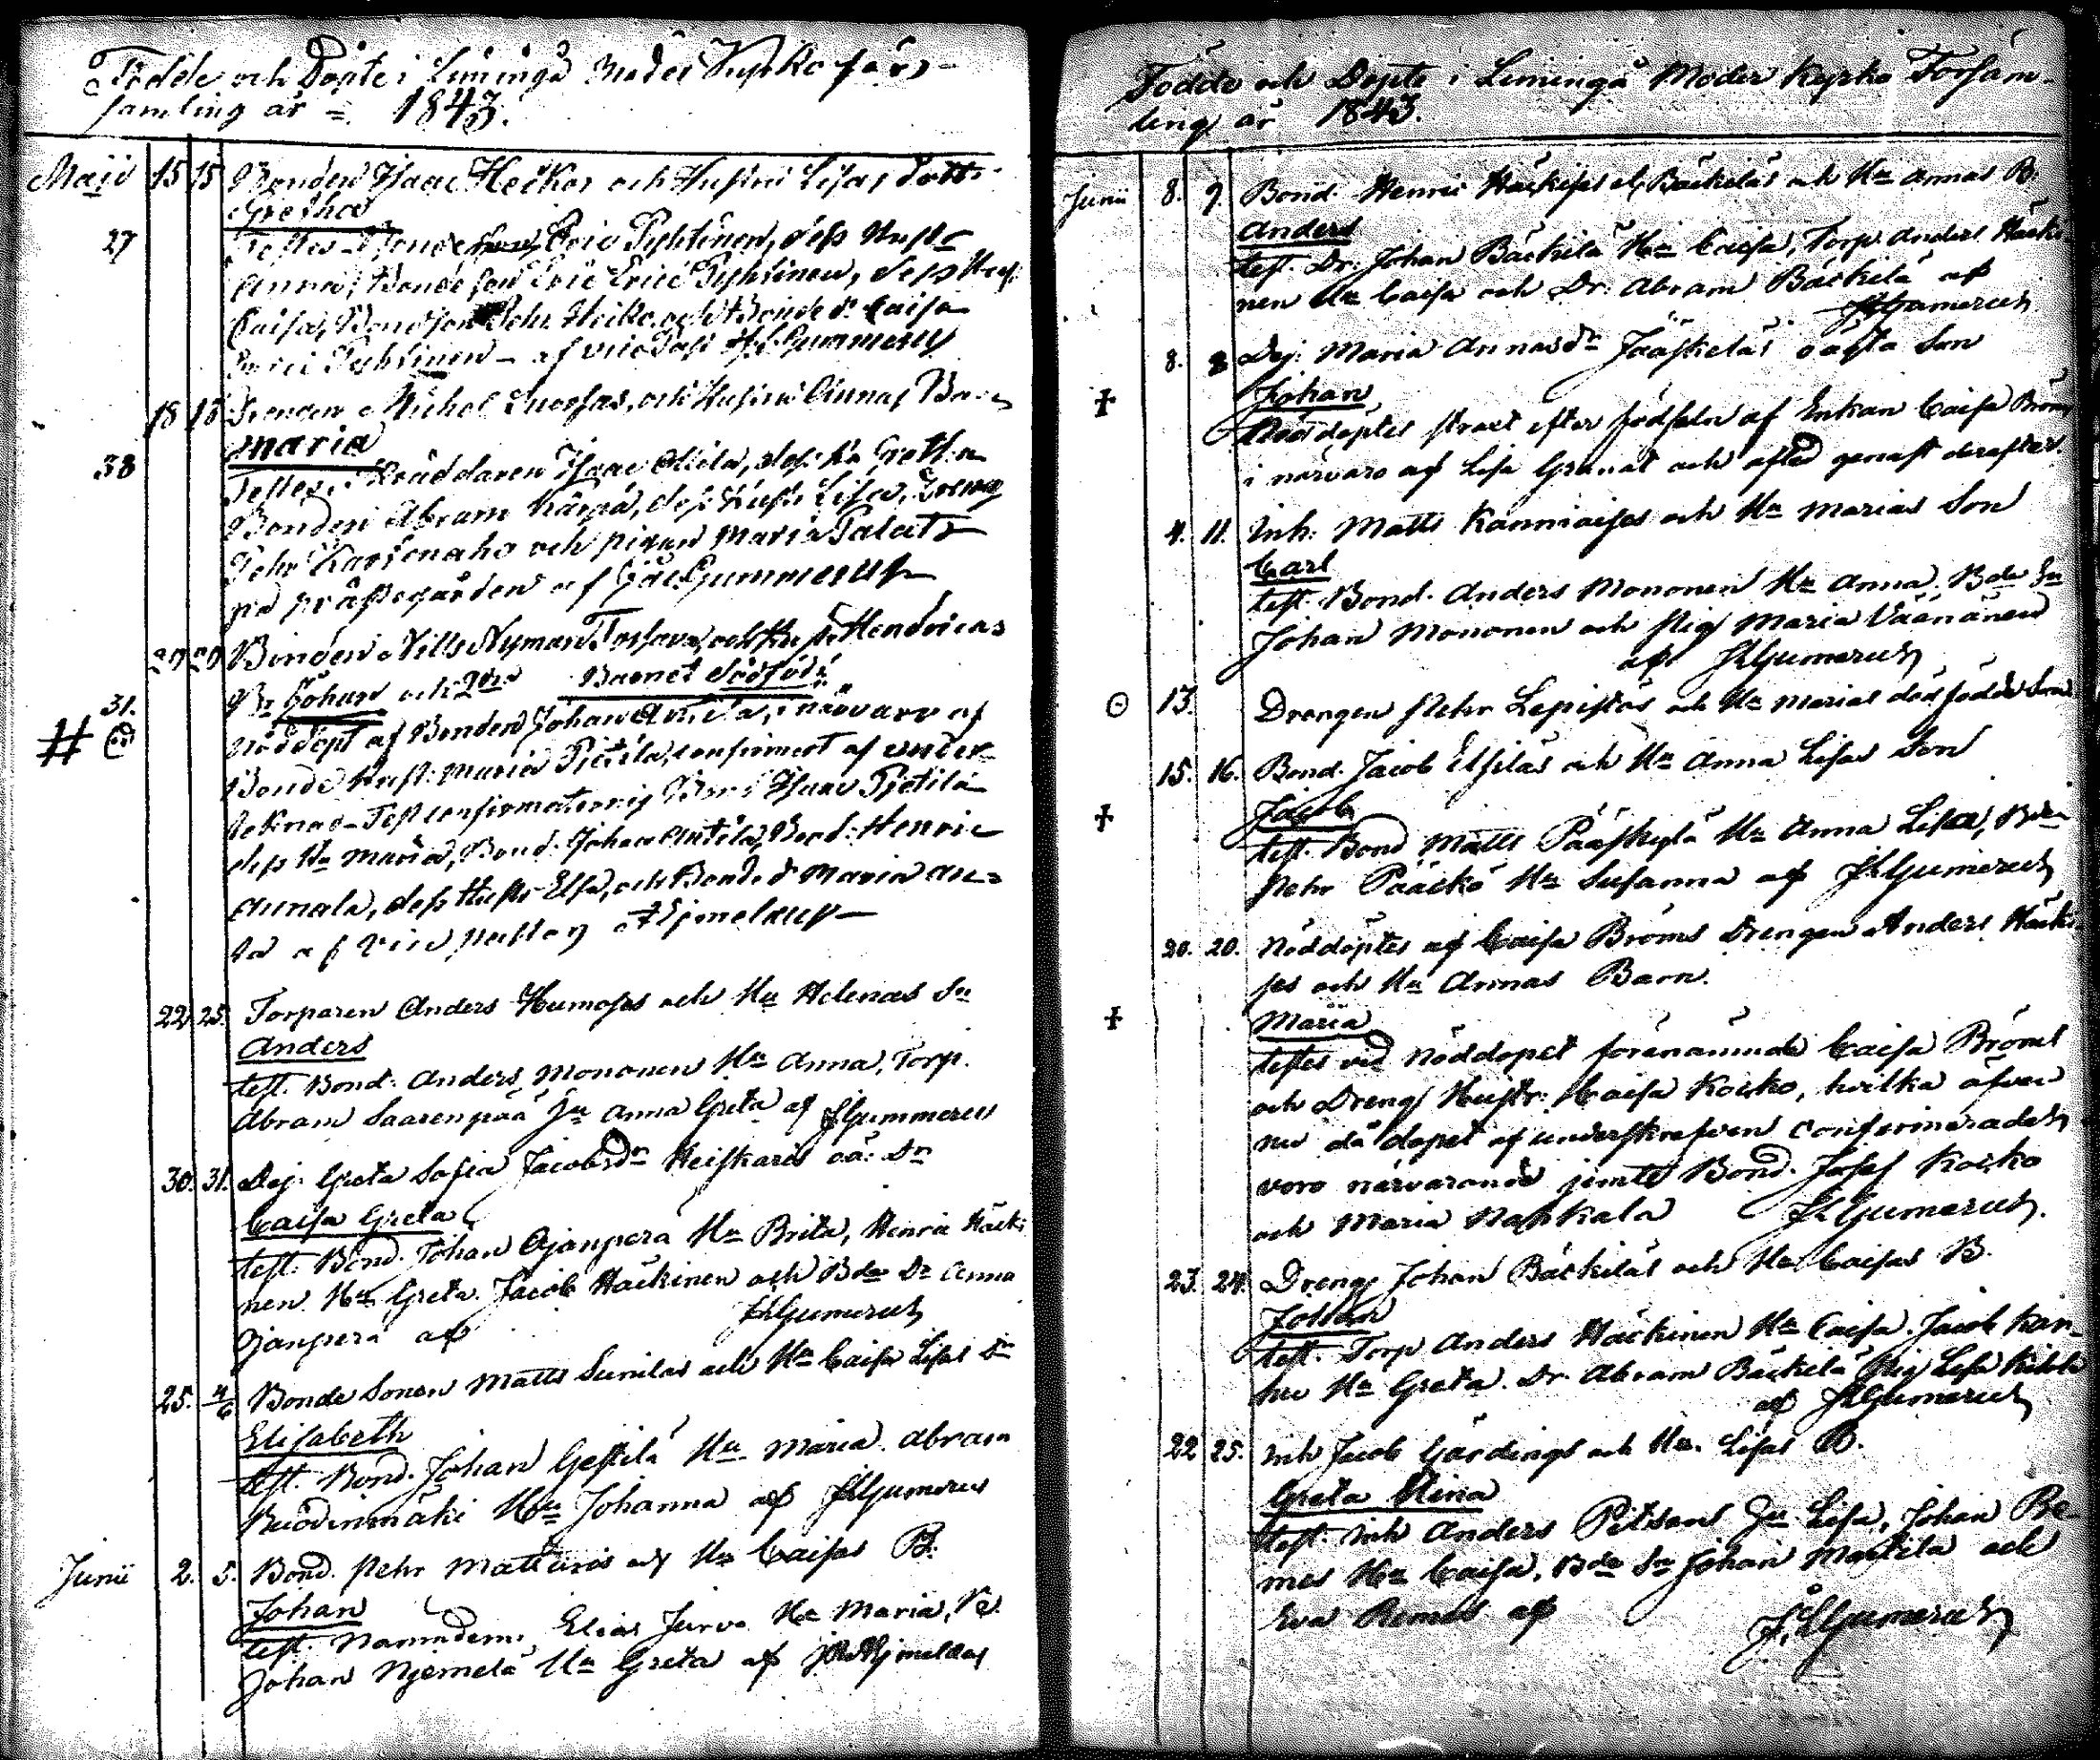 Födde och Döpte i Limingå Moder Kyrko för-
samling år = 1843.
Maji 15 15 Bonden Isaac Heikas och Hustru Lisas Dott
Gretha
27 Testes Bonde Eric Pyhtinen, dess Hustr
Anna, Bondeson Eric Erici Pyhtinen, dess Hust
Caisa, Bondson Pehr Heiko och Bonde dr Caisa
Erici Pyhtinen - af Gummerus
18 18 Drengen Michel Snosas, och Hustru Annas Barn
Maria
38 Testes: Skräddaren Isaac dess hu Gretha
Bonden Abram Kärnä, dess Hustr Lisa, Dreng
Pehr Karsonaho och pigan Maria Palats
på prästegården af Gummerus
29 29 Bonden Nills Nyman och Hustr Hendricas
Br Johan och Barnet dödföd
31. Nöddöpt af Bonden Johan Anttila, i närvaro af
# Bonde Hust: Maria Pietilä, confirmert af under-
teknad - Test confirmationis Bond Isaac Pjetilä
dess Hu Maria, Bond. Johan Anttila, Bond: Henric
Aunola, dess Hustr Elsa, och Bonde d. Maria
af Vice pastor
22 25. Torparen Anders Humosas och Hu Helenas Sn
Anders
test. Bond: Anders Mononen Hu Anna, Torp.
Abram Saarenpää Hu Anna Greta af Gummerus
30. 31. Dej. Greta Sofia Jacobsdr Heiskaris oä: Dr
Caisa Greta
test. Bond. Johan Ojanpera Hu Brita, Henric Häcki
nen Hu Greta. Jacob Häckinen och Bde Dr Anna
Ojanpera af Gumerus
25. 4/6 Bonde Sonen Matts Sunilas och Hu Caisa Lisas Dr
Elisabeth
test. Bond. Johan Gestilä Hu Maria. Abram
Huru Johanna af Gumerus
Junii 2. 5. Bond. Pehr och Hu Caisas B.
Johan
test. Nämndem. Elias Jurva Hu Maria,
Johan Njemelä Hu Greta af
Födde och Döpte i Limingå Moder Kyrko Försam-
ling år 1843.
Junii 8. 9. Bond. Henric Bäckiläs och Hu Annas B.
Anders
test. Dr. Johan Bäckilä Hu Caisa, Torp. Anders Häcki
nen Hu Caisa och Dr. Abram Bäckilä af
Gumerus
8. 8 Dej: Maria Annasdr Jääskeläs oäkta Son
Johan
+ Nöddöptes straxt efter födseln af Enkan Caisa Bröms
i närvaro af Lisa Granat och afled genast derefter.
4. 11. Inh. Matts Kanniaises och Hu Marias Son
Carl
test. Bond. Anders Mononen Hu Anna. Bde Sn
Johan Mononen och Pig Maria Väänänen
af Gumerus
13. Drengen Pehr Lepistös och Hu Marias dödfödde Son
15. 16. Bond. Jacob och Hu Anna Lisas Son
Jacob
+ test. Bond Matts Pääskylä Hu Anna Lisa, Bden
Pehr Pääckö Hu Susanna af Gumerus
20. 20. Nöddöptes af Caisa Bröms Drengen Anders Häcki
ses och Hu Annas Barn.
+ Maria
testes vid nöddopet förenämnda Caisa Bröms
och Dreng Hustr: Caisa Kocko, hvilka äfven
nu då dopet af underskrefven confirmerades
voro närvarande jemte Bond. Josef Kocko
och Maria Nahkala Gumerus.
23. 24. Dreng Johan Bäckiläs och Hu Caisas B.
Johan
test. Torp Anders Häckinen Hu Caisa. Jacob Kar-
hu Hu Greta. Dr. Abram Bäckilä Pig Lisa
af Gumerus
22 25. Inh Jacob Gärdings och Hu. Lisas B.
Greta Stina
test. Inh Anders Hu Lisa, Johan Re-
mes Hu Caisa, Bde Sn Johan Marttila och
Eva Remes af Gumerus